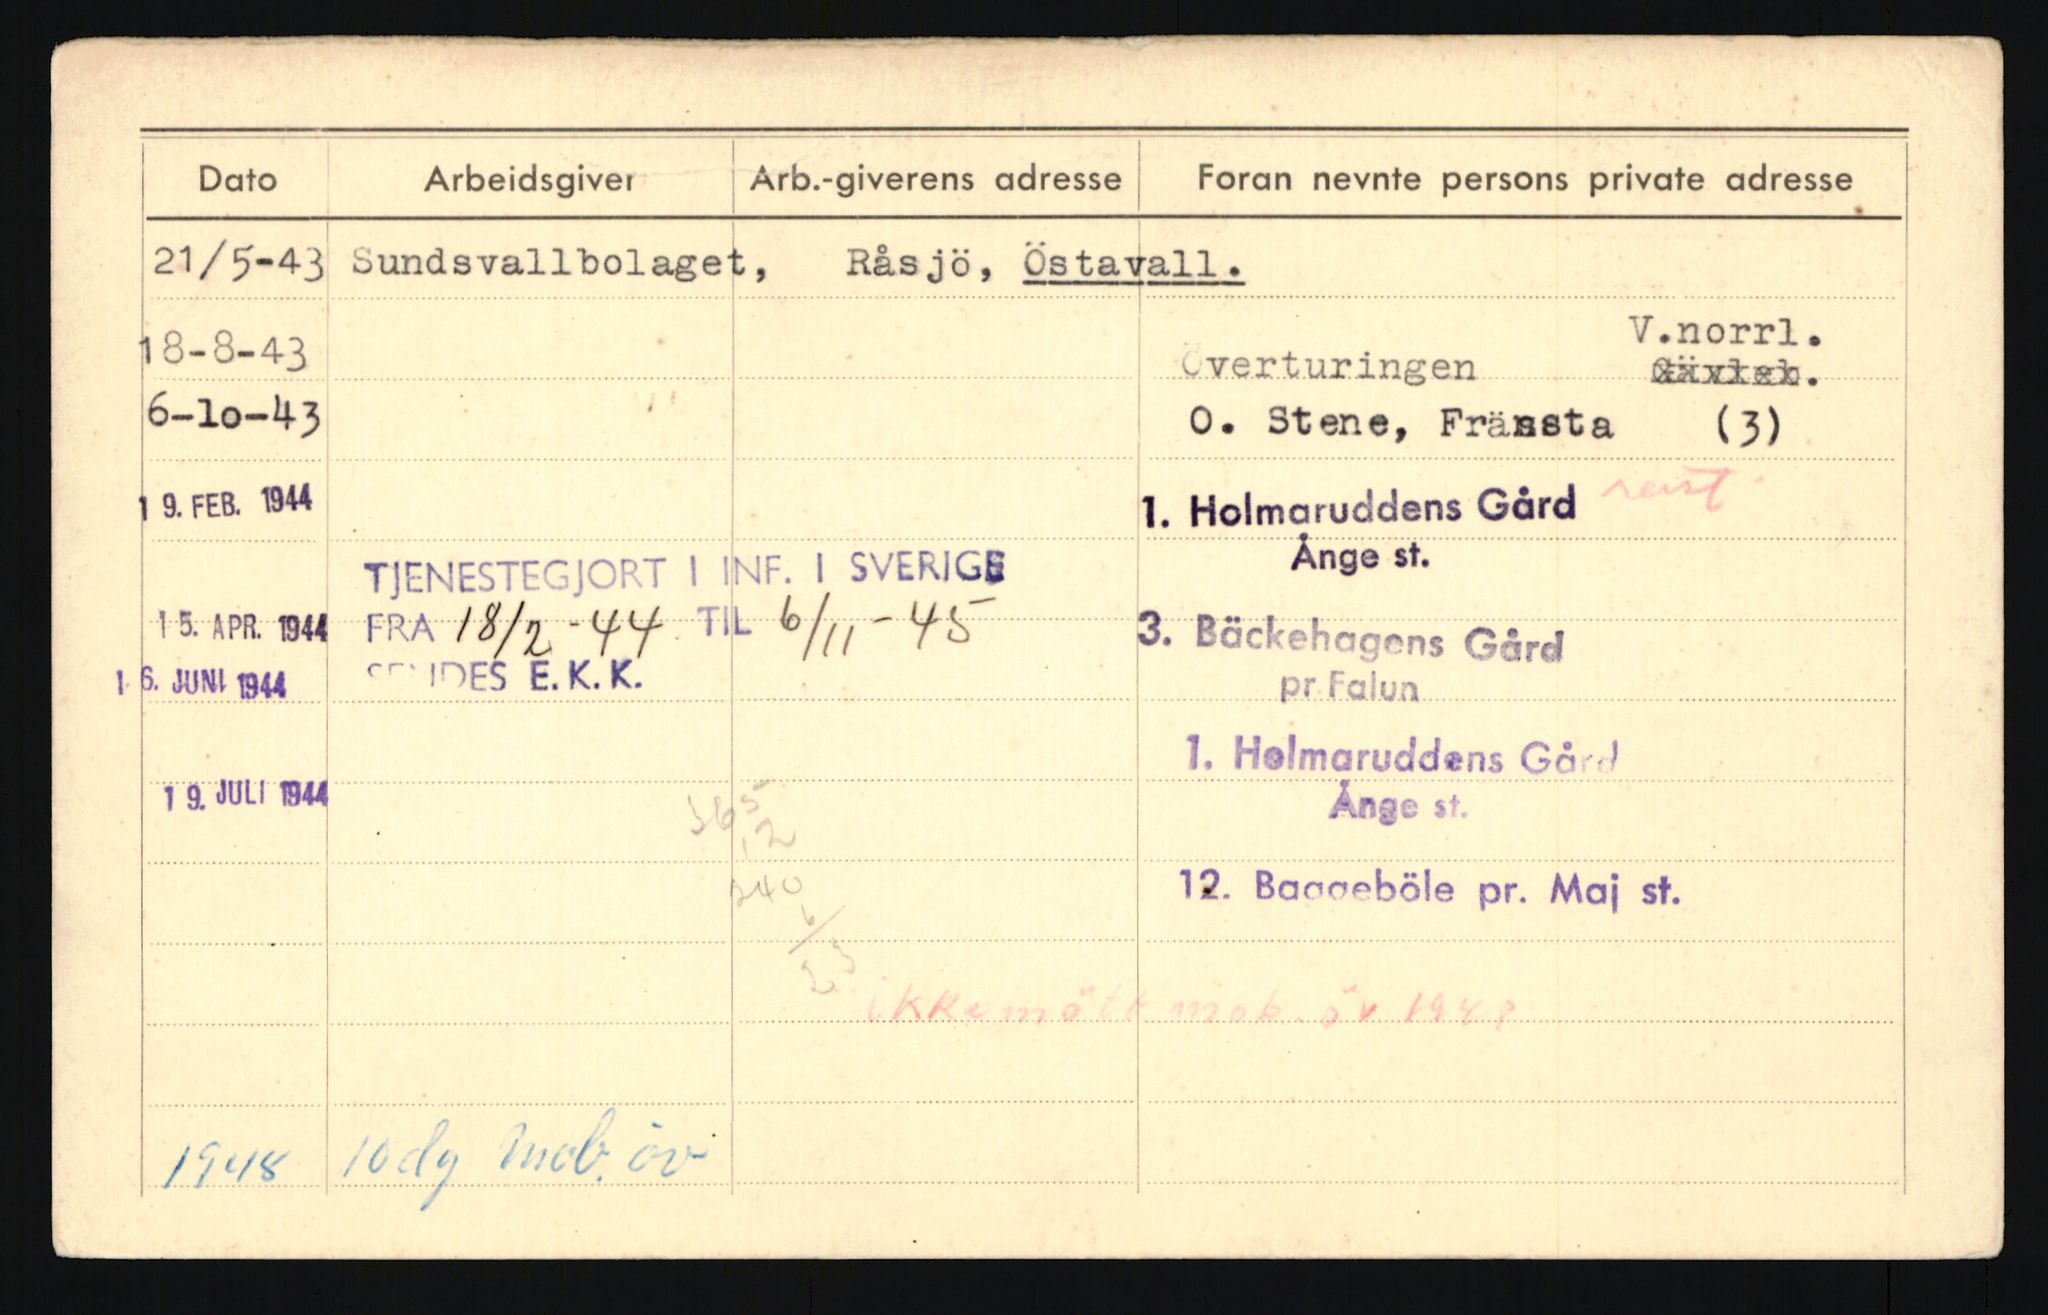 Dato Arbeidsgiver Arb.-giverens adresse Foran nevnte persons private adresse
21/5-43 Sundsvallbolaget, Råsjö, Östavall.
V.norrl.
18-8-43 Överturingen
6-lo-43 O. Stene, Fränsta (3)
19. FEB. 1944 1. Holmaruddens Gård reist
Ånge st.
TJENESTEGJORT I INF. I SVERIGE
15. APR. 1944 FRA 18/2-44 TIL 6/11-45 3. Bäckehagens Gård
16. JUNI 1944 SENDES E.K.K. pr Falun
1. Holmaruddens Gård
19. JULI 1944 Ånge st.
365
12
340
12. Baggeböle pr. Maj st.
ikke mött mob. öv 1948
1948 10 dg Mob. öv